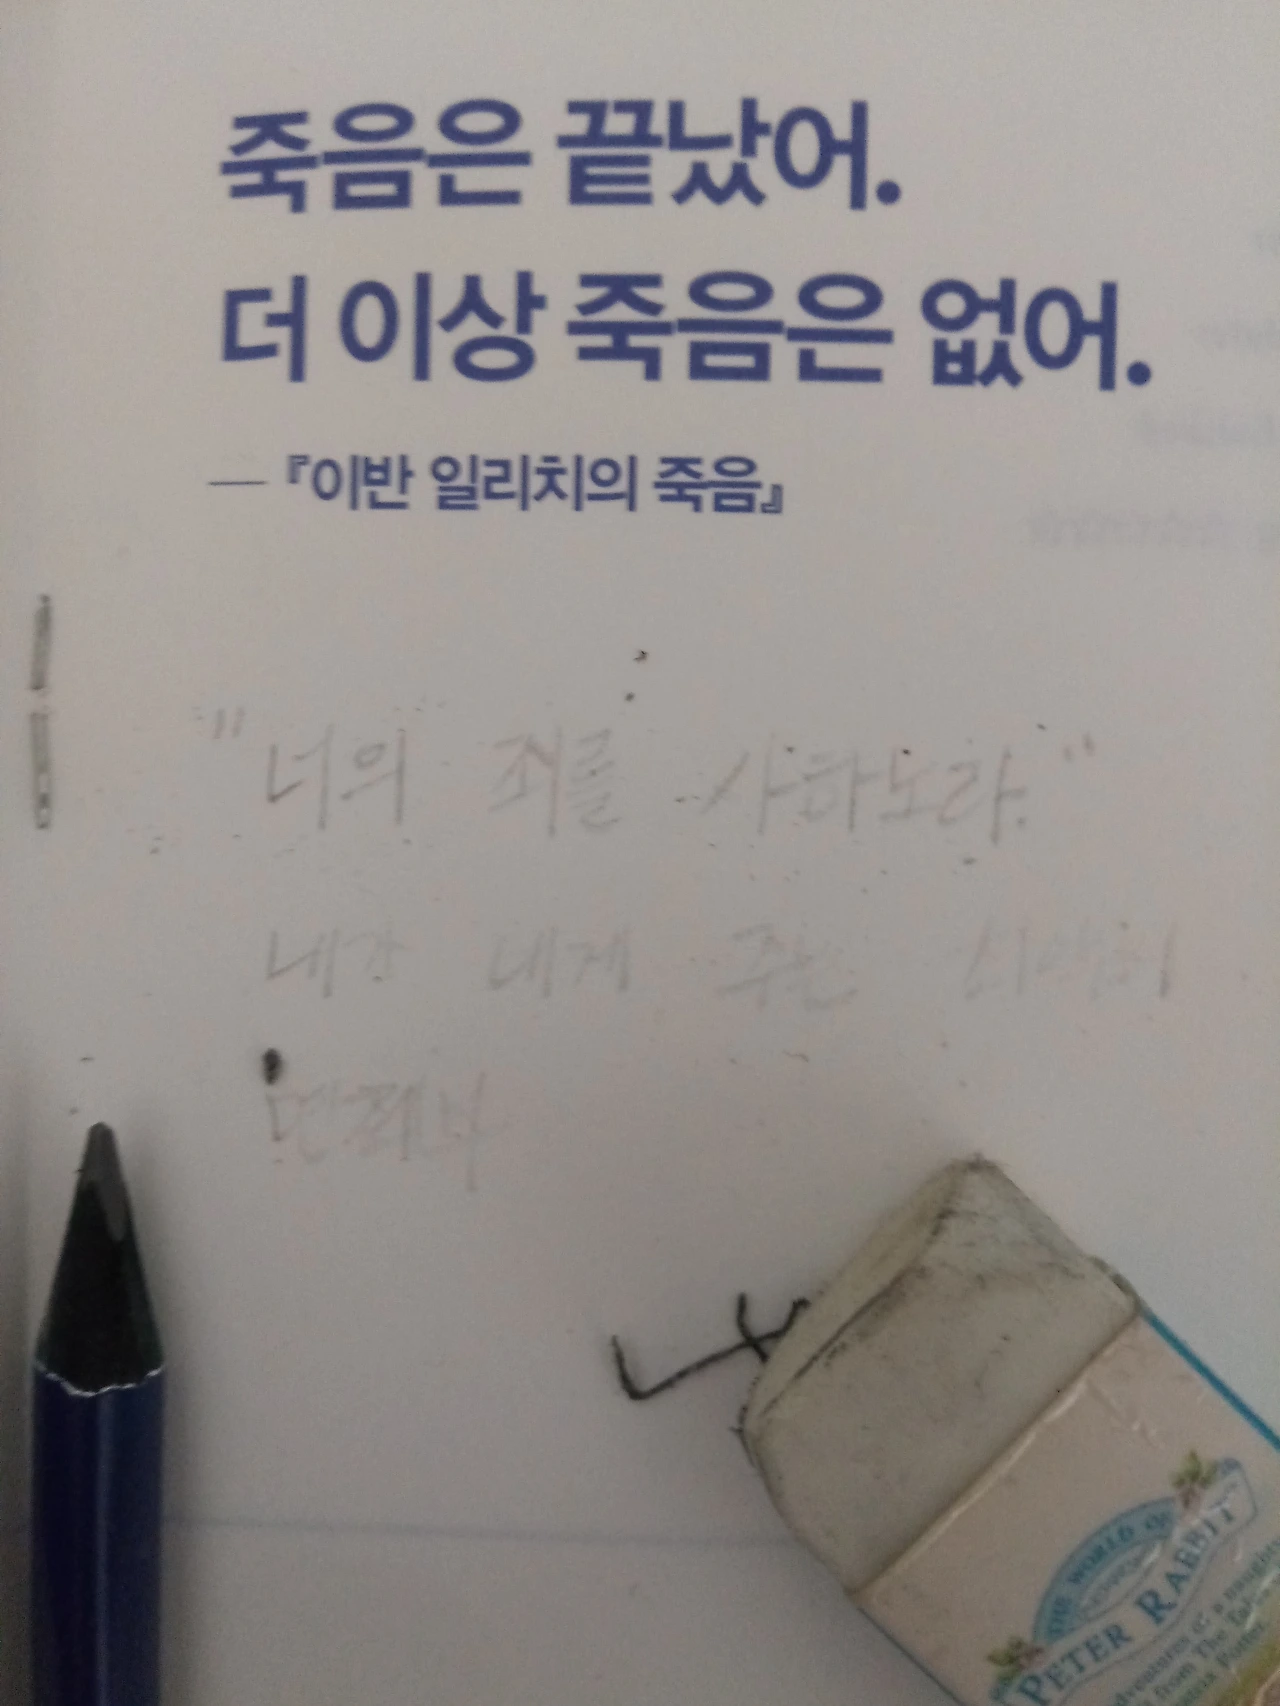 죽음은 끝났어.
더 이상 죽음은 없어.
— 『이반 일리치의 죽음』
"너의 죄를 사하노라."
내가 네게 주는
THE WORLD OF
PETER RABBIT
from The Tale